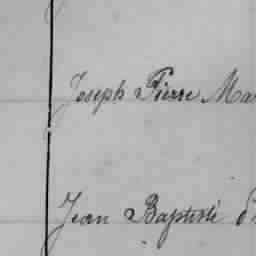 Joseph Pierre Ma
Jean Baptiste